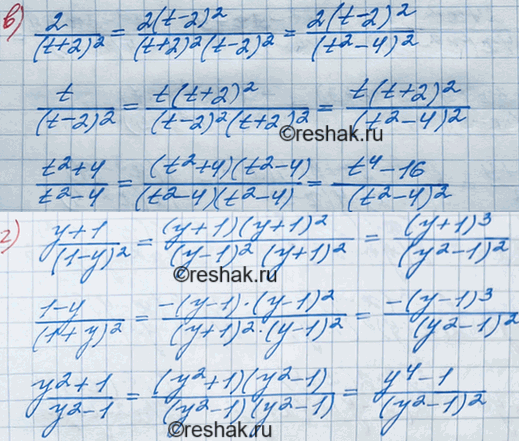 в) 2/(t+2)² = 2(t-2)²/(t+2)²(t-2)² = 2(t-2)²/(t²-4)²
t/(t-2)² = t(t+2)²/(t-2)²(t+2)² = t(t+2)²/(t²-4)²
©reshak.ru
t²+4/t²-4 = (t²+4)(t²-4)/(t²-4)(t²-4) = t⁴-16/(t²-4)²
г) y+1/(1-y)² = (y+1)(y+1)²/(y-1)²(y+1)² = (y+1)³/(y²-1)²
©reshak.ru
1-y/(1+y)² = -(y-1)·(y-1)²/(y+1)²·(y-1)² = -(y-1)³/(y²-1)²
y²+1/y²-1 = (y²+1)(y²-1)/(y²-1)(y²-1) = y⁴-1/(y²-1)²
©reshak.ru